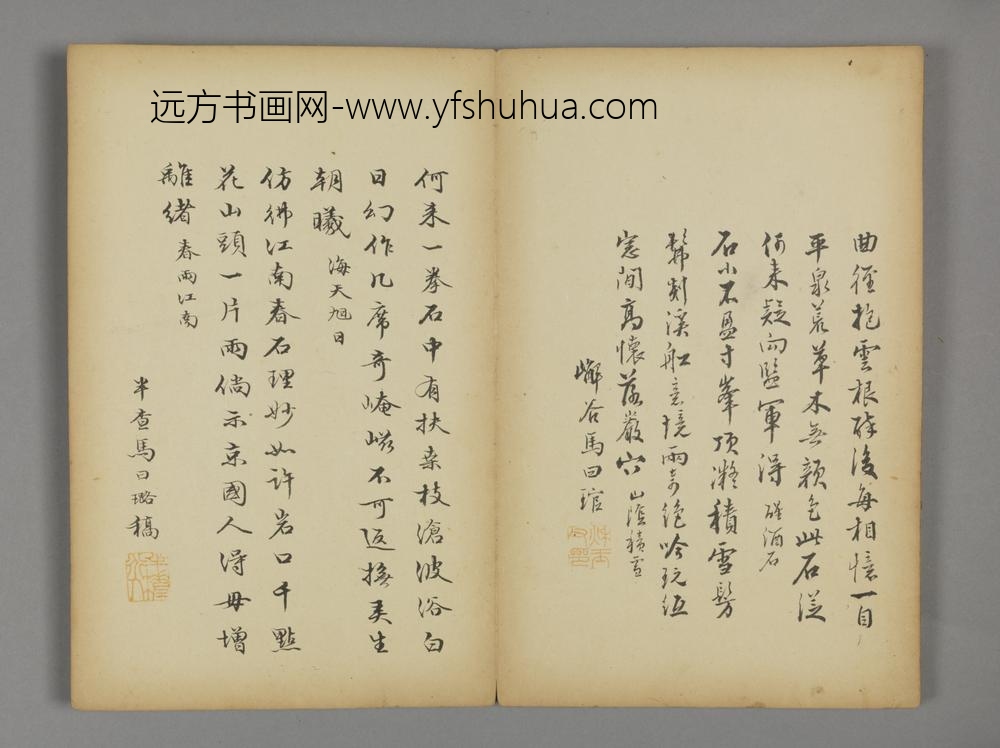 远方书画网-www.yfshuhua.com
曲徑抱雲根醉後每相憶一自
平泉荒草木無顏色此石從
何來疑向監軍得 醒酒石
石小不盈寸峯頂凝積雪髣
髴剡溪船意境兩奇絶吟玩
窓間高懷落巖穴 山陰積雪
嶰谷馬曰琯
何來一拳石中有扶桑枝滄波浴白
日幻作几席奇崦嵫不可返撫美生
朝曦 海天旭日
仿彿江南春石理妙如許岩口千點
花山頭一片雨倘示京國人得毋增
離緒 春雨江南
半查馬曰璐稿